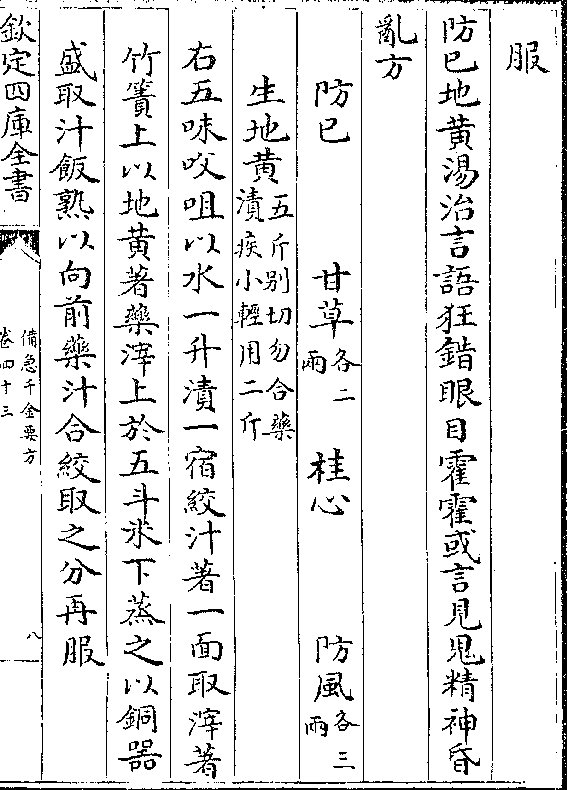 服
防巳地黄湯治言語狂錯眼目霍霍或言見鬼精神昏
亂方
防巳　甘草各二兩　桂心　防風各三兩
生地黄五斤别切勿合藥漬疾小輕用二斤
右五味㕮咀以水一升漬一宿絞汁著一面取滓著
竹簀上以地黄著藥滓上於五斗米下蒸之以銅器
盛取汁飯熟以向前藥汁合絞取之分再服
欽定四庫全書
備急千金要方
卷四十三
八